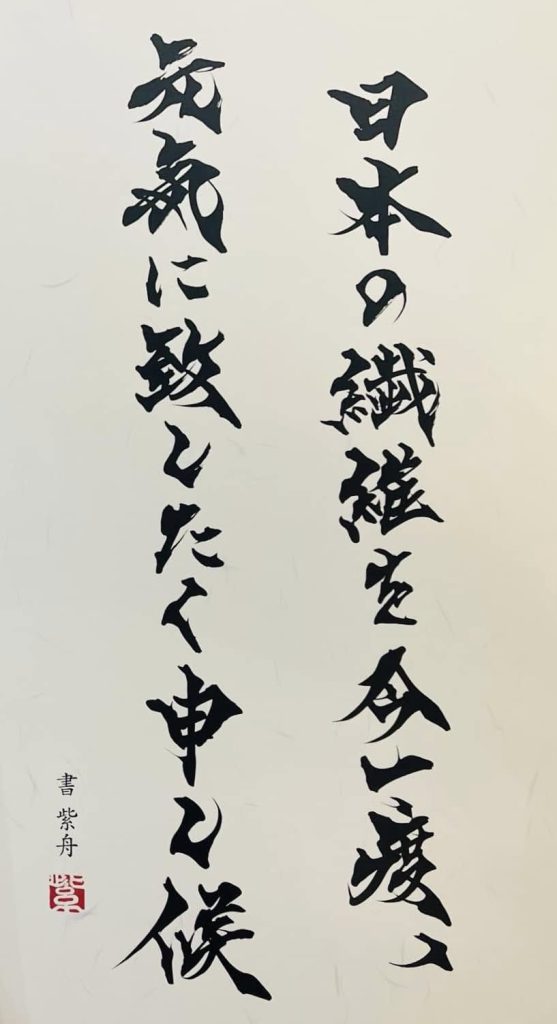 日本の繊維を今一度、
元気に致したく申し候
書 紫舟
紫